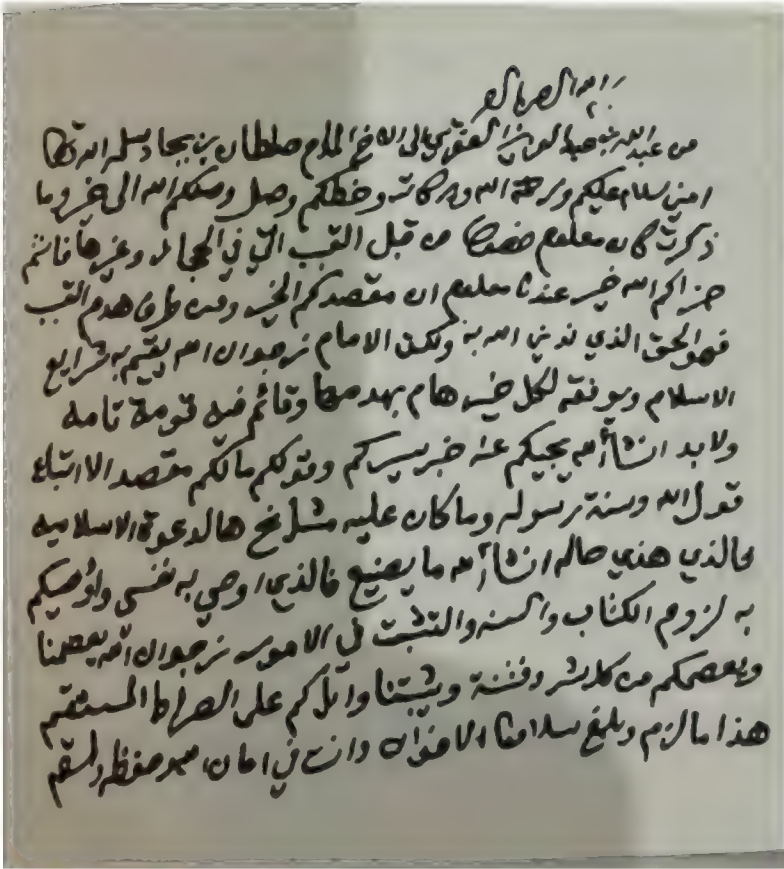 بسم الله الرحمن الرحيم
من عبد الله بن عبد العزيز العنقري الى الاخ المكرم سلطان بن بجاد سلمه الله تعالى
امين سلام عليكم ورحمة الله وبركاته وخطكم وصل وصلكم الله الى خير وما
ذكرت كان معلوم خصوصا من قبل القبب التي في الحجاز وغيرها فانتم
جزاكم الله خير عندنا معلوم ان مقصدكم الخير ومن طرف هدم القبب
فهو الحق الذي ندين الله به ولكن الامام نرجوا ان الله يقيم به شرايع
الاسلام ويوفقه لكل خير هام بهدمها وقائم فيه قومة تامة
ولا بد انشأ الله يجيكم عنه خبر يسركم وقولكم مالكم مقصد الا اتباع
قول الله وسنة رسوله وما كان عليه مشائخ هالدعوة الاسلاميه
فالذي هذي حاله انشأ الله ما يضيع فالذي اوصي به نفسي واوصيكم
به لزوم الكتاب والسنه والتثبت في الامور نرجوا ان الله يعصمنا
ويعصمكم من كل شر وفتنة ويثبتنا واياكم على الصراط المستقيم
هذا ما لزم وبلغ سلامنا الاخوان وانت في امان الله وحفظه والسلام